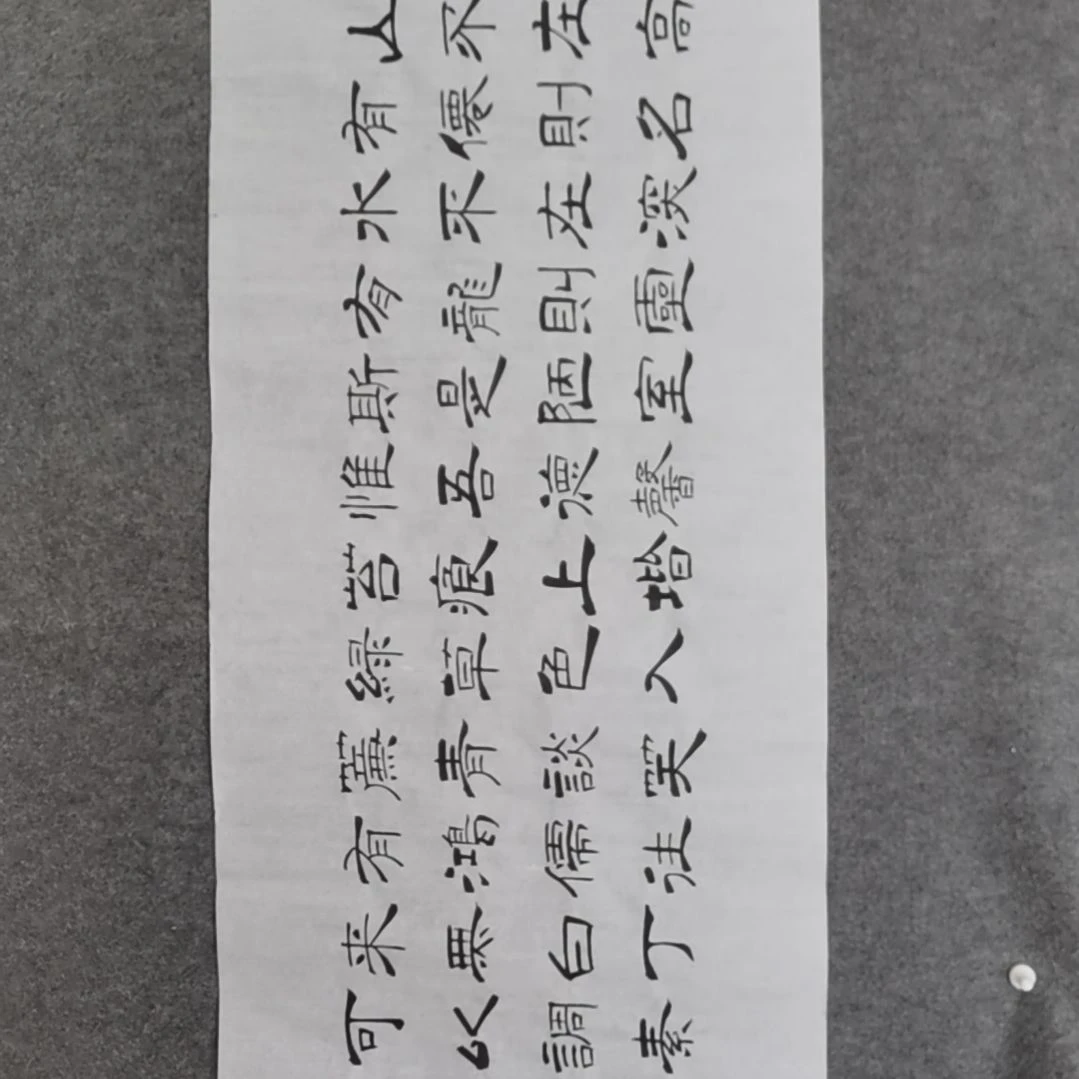 山不在高
有僊則名
水不在深
有龍則靈
斯是陋室
惟吾德馨
苔痕上堦
緑草色入
簾青談笑
有鴻儒往
来無白丁
可以調素